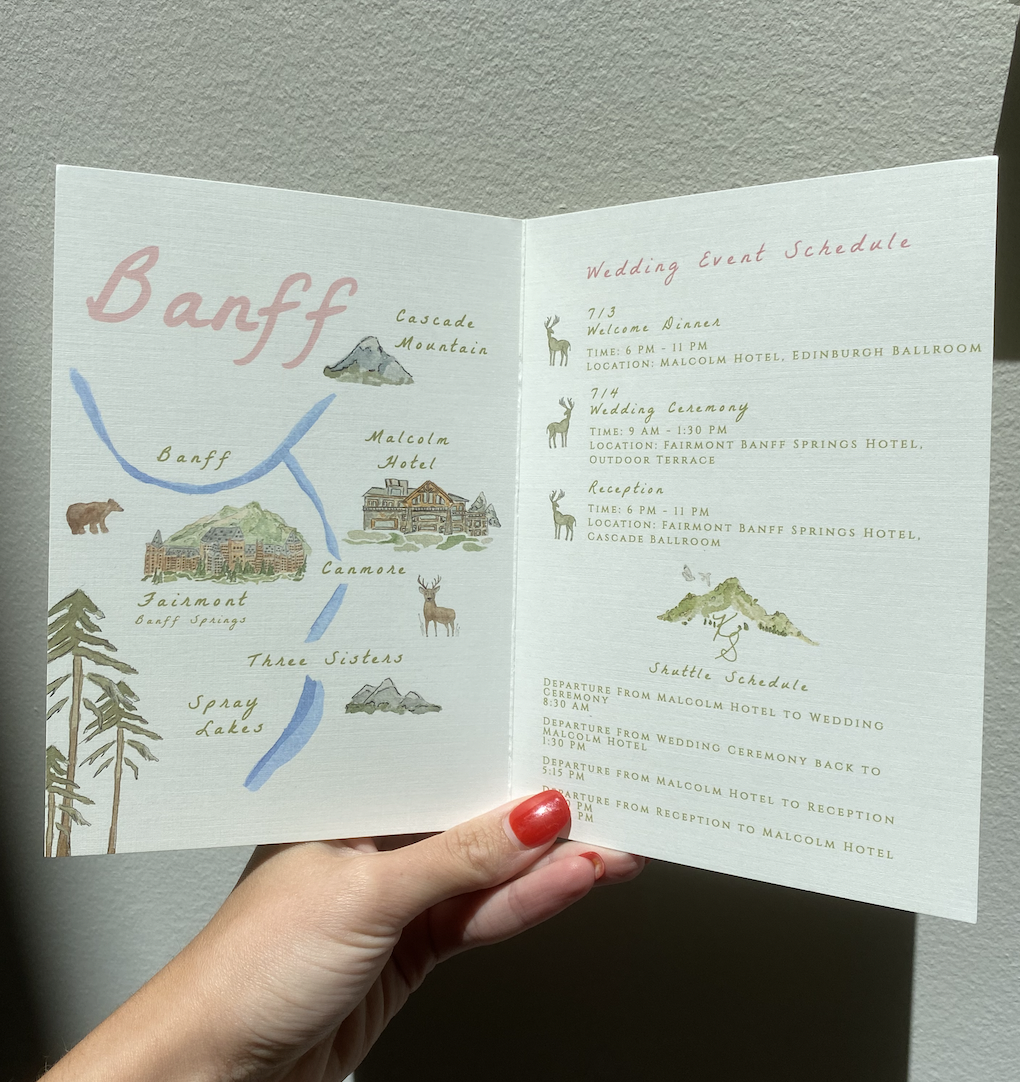 Banff
Cascade
Mountain
Banff
Malcolm
Hotel
Canmore
Fairmont
Banff Springs
Three Sisters
Spray
Lakes
Wedding Event Schedule
7/3
Welcome Dinner
Time: 6 PM - 11 PM
Location: Malcolm Hotel, Edinburgh Ballroom
7/4
Wedding Ceremony
Time: 9 AM - 1:30 PM
Location: Fairmont Banff Springs Hotel,
Outdoor Terrace
Reception
Time: 6 PM - 11 PM
Location: Fairmont Banff Springs Hotel,
Cascade Ballroom
KS
Shuttle Schedule
Departure From Malcolm Hotel to Wedding
Ceremony
8:30 AM
Departure From Wedding Ceremony Back to
Malcolm Hotel
1:30 PM
Departure From Malcolm Hotel to Reception
5:15 PM
From Reception to Malcolm Hotel
PM
PM